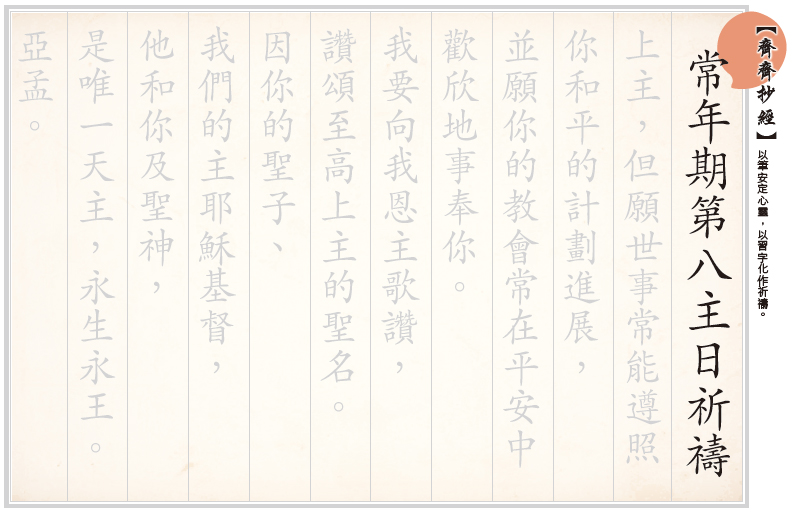 【齊齊抄經】以筆安定心靈，以習字化作祈禱。
常年期第八主日祈禱
上主，但願世事常能遵照
你和平的計劃進展，
並願你的教會常在平安中
歡欣地事奉你。
我要向我恩主歌讚，
讚頌至高上主的聖名。
因你的聖子、
我們的主耶穌基督，
他和你及聖神，
是唯一天主，永生永王。
亞孟。